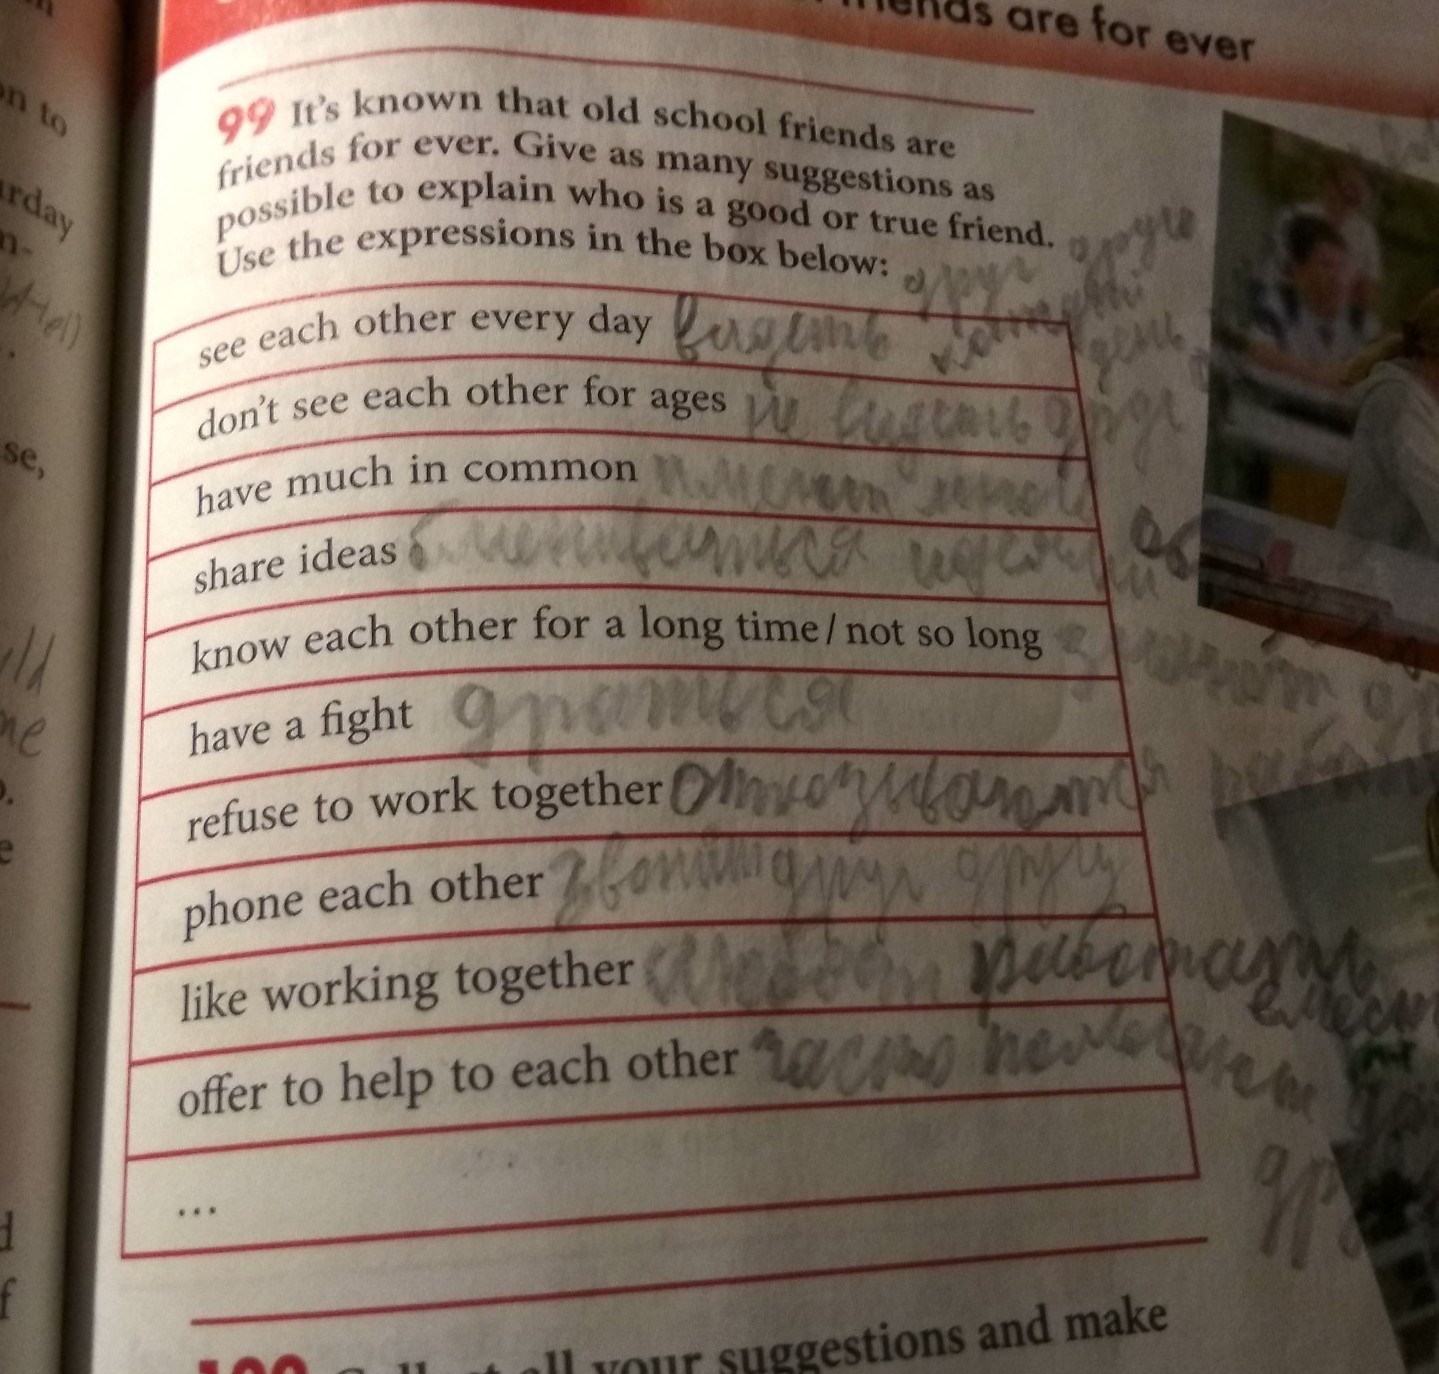 are for ever
99 It's known that old school friends are
friends for ever. Give as many suggestions as
possible to explain who is a good or true friend.
Use the expressions in the box below:
друг друга
see each other every day видеть каждый день
don't see each other for ages не видеть друг
have much in common имеют много
share ideas обмениваться идеями
know each other for a long time / not so long знают
have a fight драться
refuse to work together отказываются
phone each other звонить друг другу
like working together работать
offer to help to each other часто
...
all your suggestions and make
on to
urday
se,